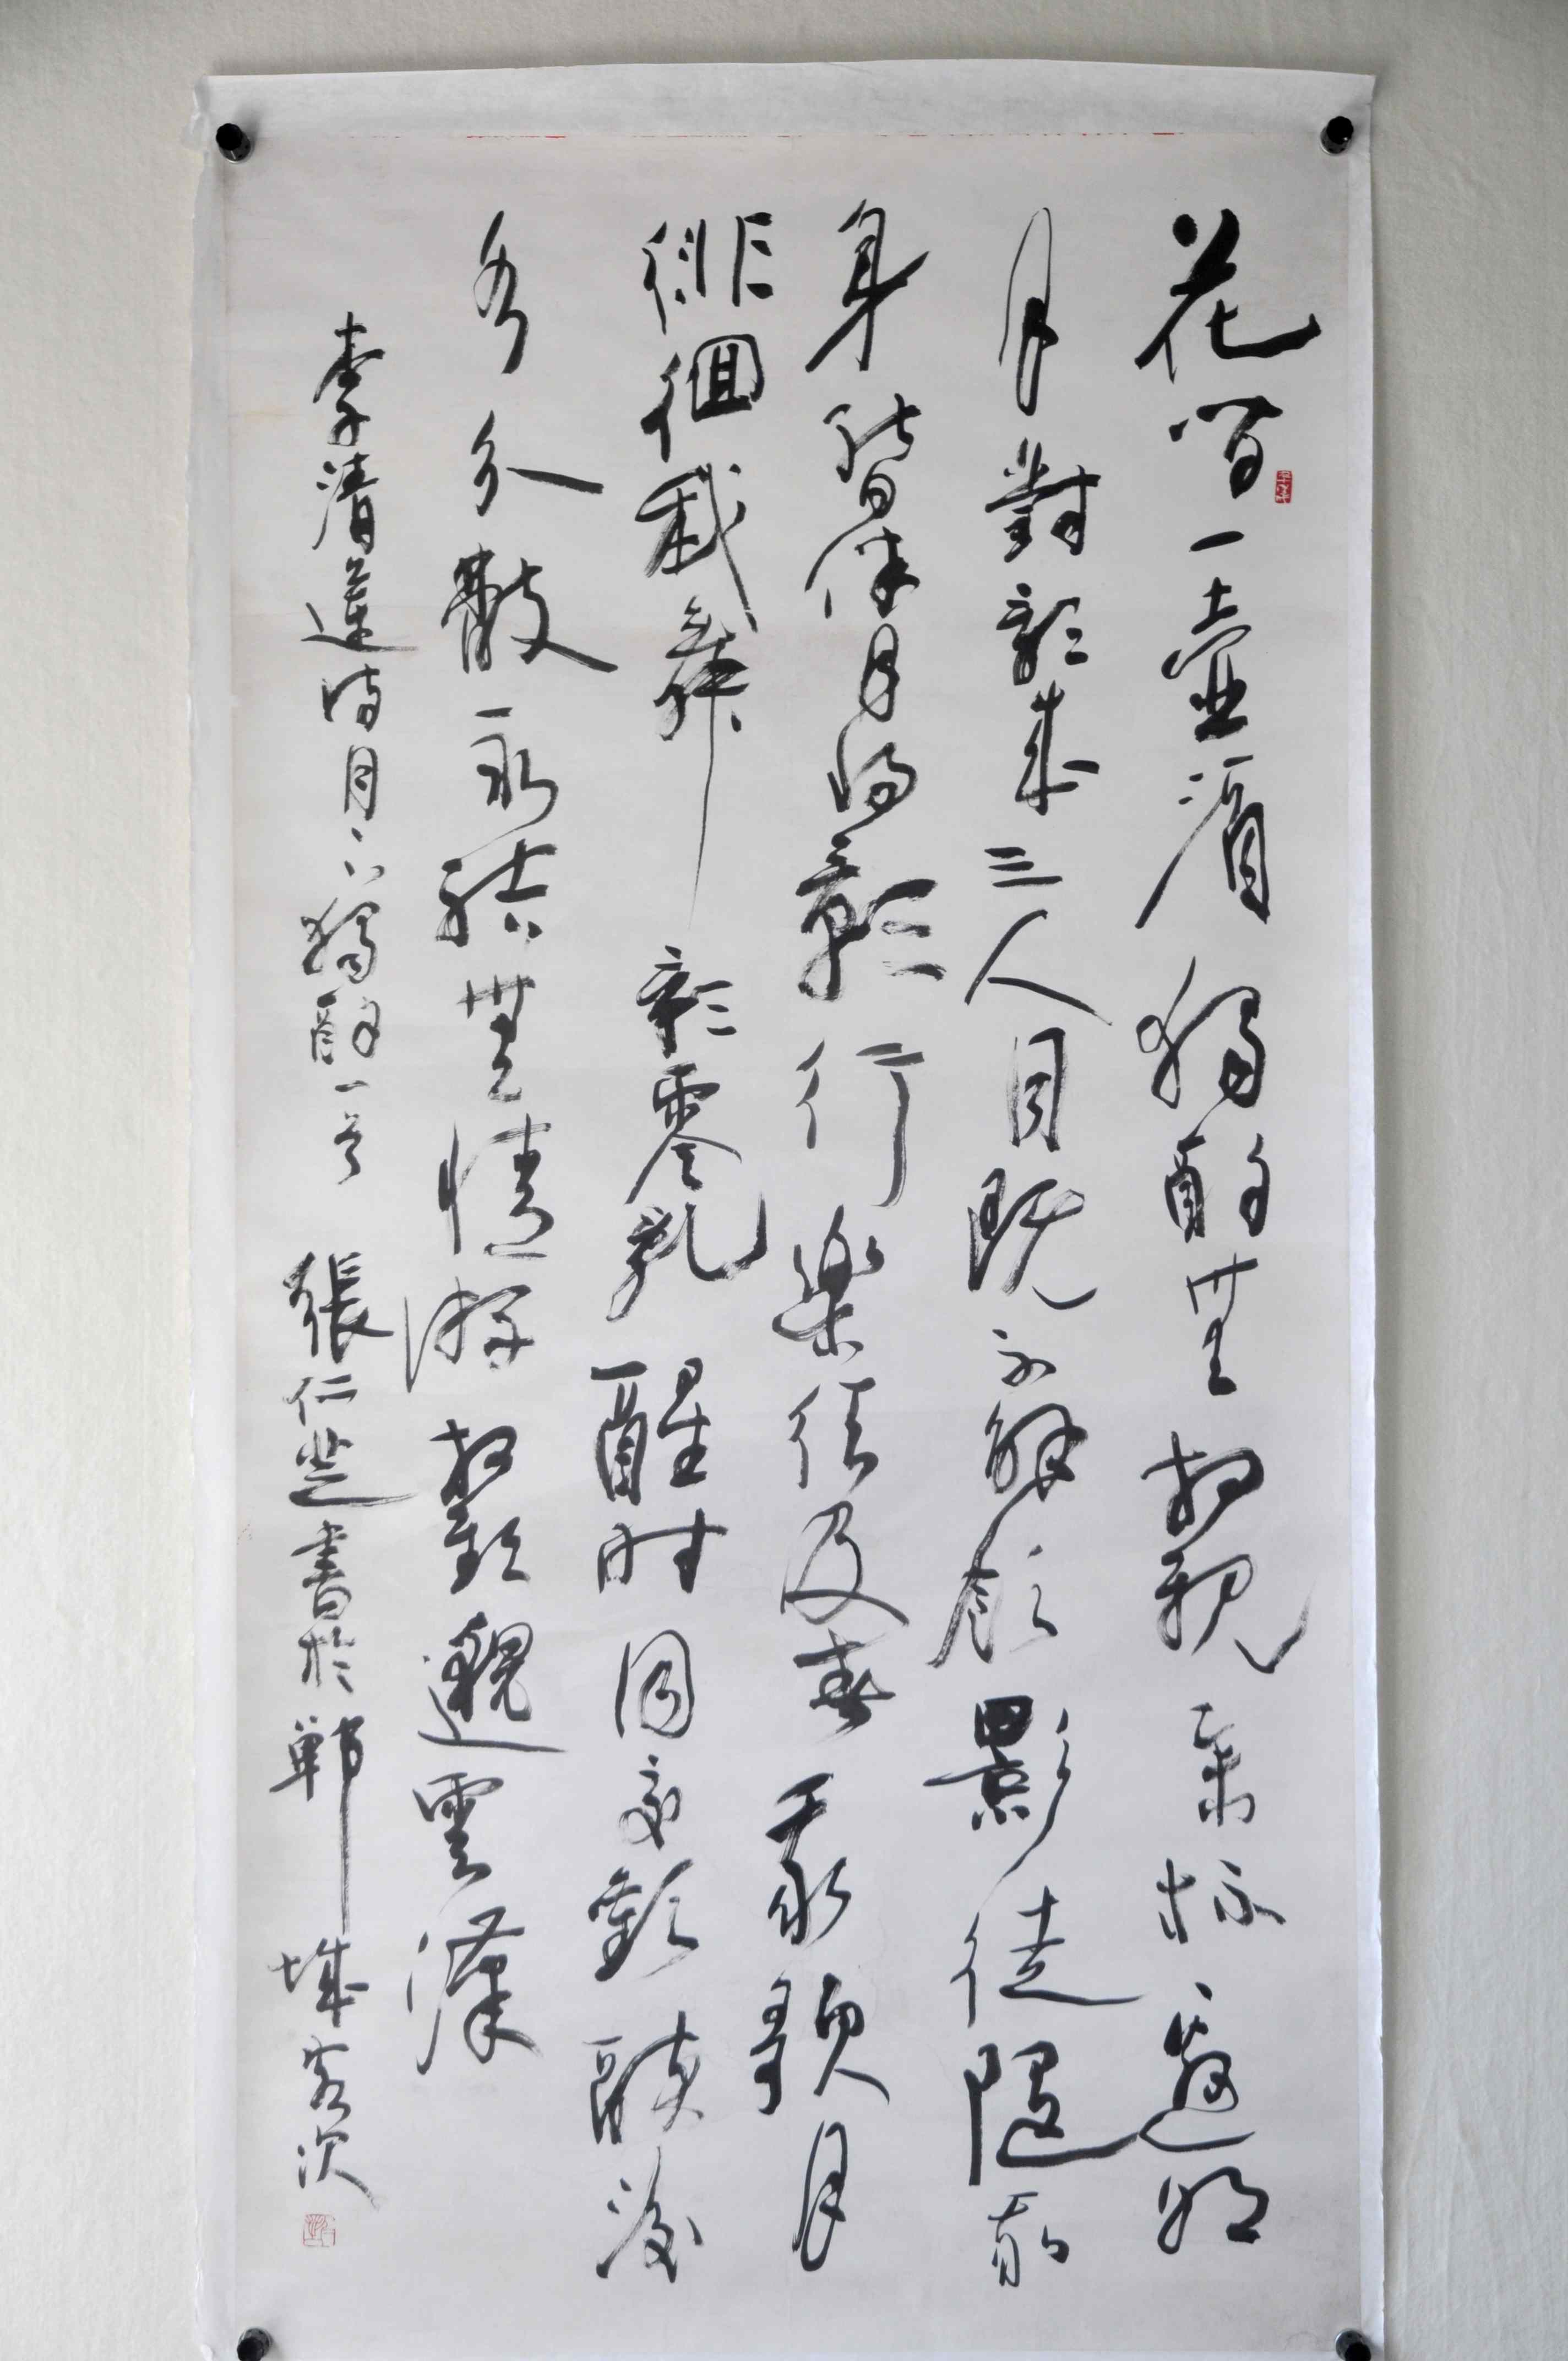 花間一壺酒獨酌無相親舉杯邀明
月對影成三人月既不解飲影徒隨我
身暫伴月將影行樂須及春我歌月
徘徊我舞影零亂醒時同交歡醉後
各分散永結無情游相歡邈雲漢
李清蓮詩月下獨酌一首 張仁芝書於鄲城客次